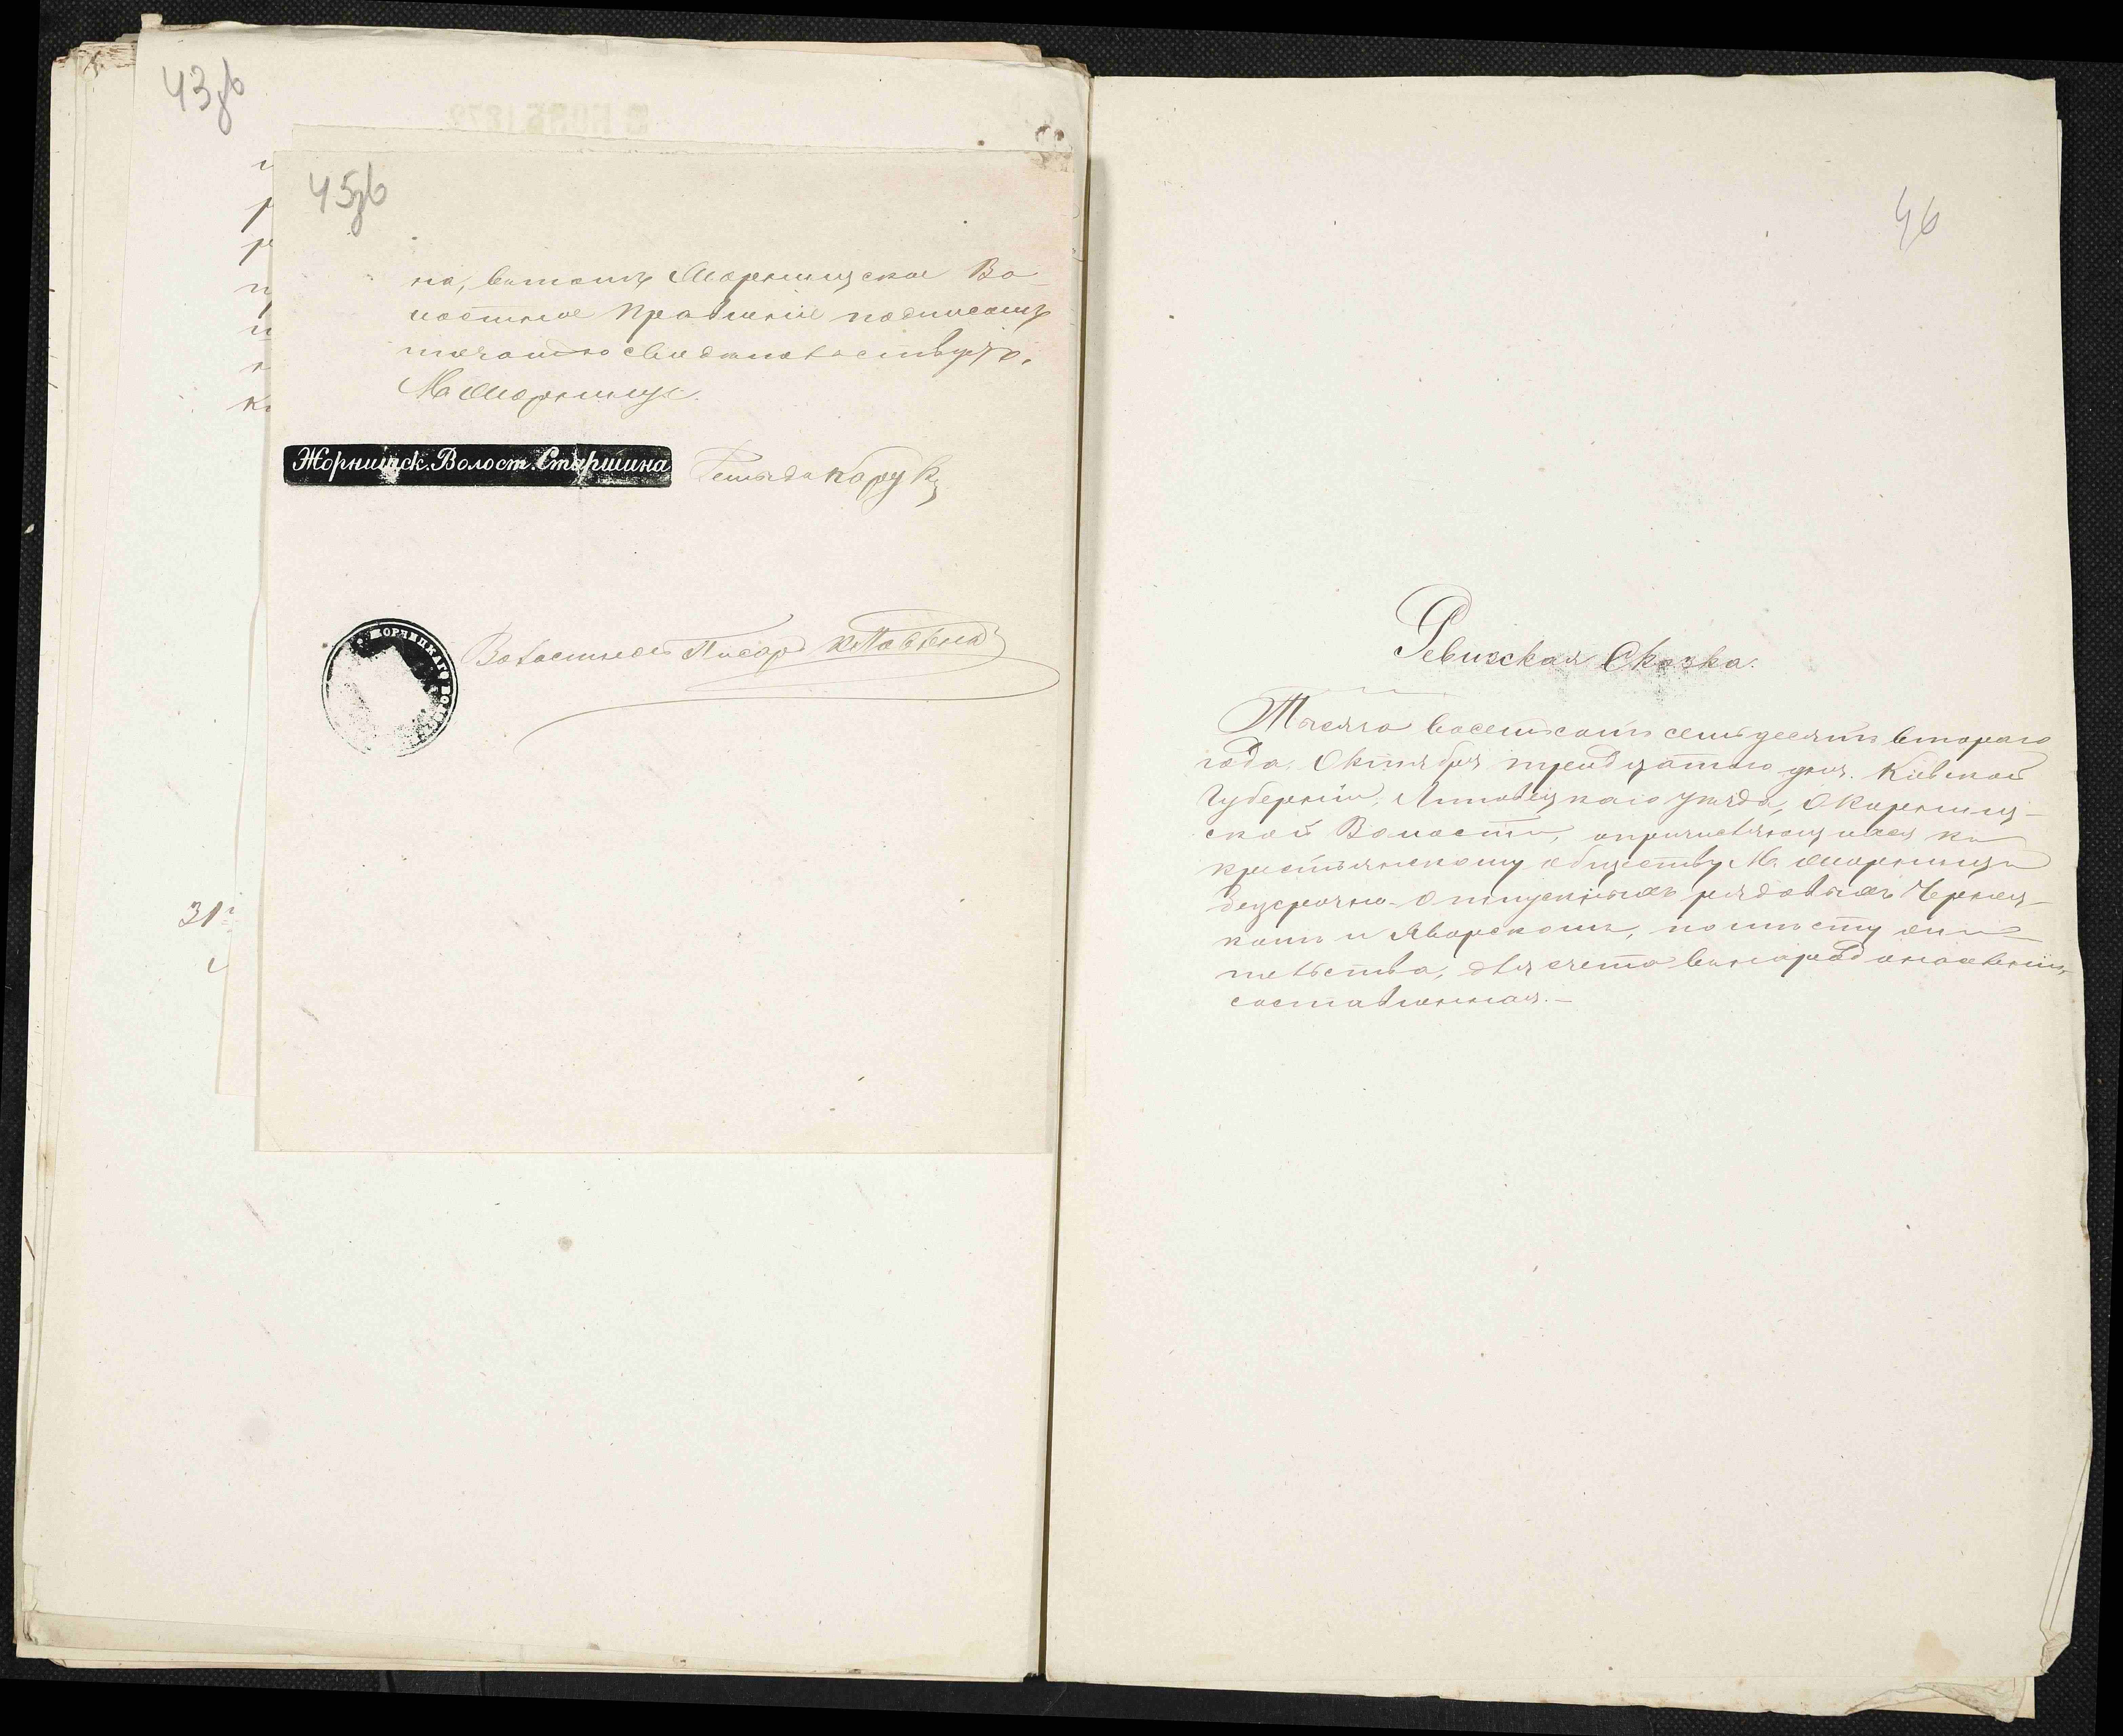 43об
45об
на, въ томъ Жорнищское Во-
лостное Правленіе подписомъ
печатью свидѣтельствуетъ.
М. Жорнище.
Жорнищск. Волост. Старшина
Волостной Писарь
ЖОРНИЩКАГО ВОЛ
31
46
Ревизская Сказка.
Тысяча восемьсотъ семьдесятъ втораго
года, Октября тридцатого дня. Кіевской
Губерніи, Липовецкаго уѣзда, Жорнищ-
ской Волости, о причисляющихся къ
крестьянскому обществу М. Жорнища
безсрочно-отпускныхъ рядовыхъ
и Яворскомъ, по мѣсту жи-
тельства, для счета
составленная.—